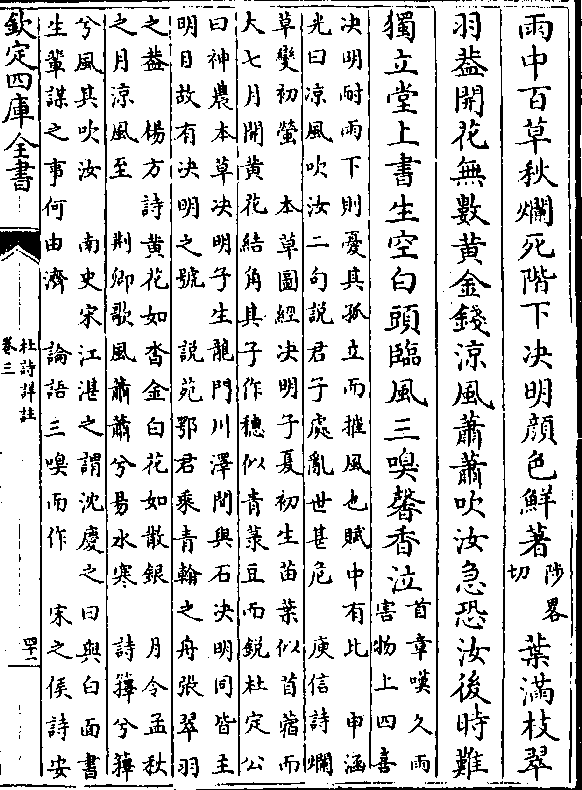 雨中百草秋爛死階下決明顔色鮮著陟畧切葉滿枝翠
羽葢開花無數黄金錢涼風蕭蕭吹汝急恐汝後時難
獨立堂上書生空白頭臨風三嗅馨香泣首章嘆久雨
害物上四喜
决明耐雨下則憂其孤立而摧風也賦中有比　申涵
光曰涼風吹汝二句説君子處亂世甚危　庾信詩爛
草變初螢　本草圖經决明子夏初生苗葉似苜蓿而
大七月開黄花結角其子作穗似青菉豆而鋭杜定公
曰神農本草决明子生龍門川澤間與石决明同皆主
明目故有决明之號　説苑鄂君乘青翰之舟張翠羽
之葢　楊方詩黄花如沓金白花如散銀　月令孟秋
之月涼風至　荆卿歌風蕭蕭兮易水寒　詩蘀兮蘀
兮風其吹汝　南史宋江湛之謂沈慶之曰與白面書
生輩謀之事何由濟　論語三嗅而作　宋之俟詩安
欽定四庫全書
杜詩詳註
卷三
四十一